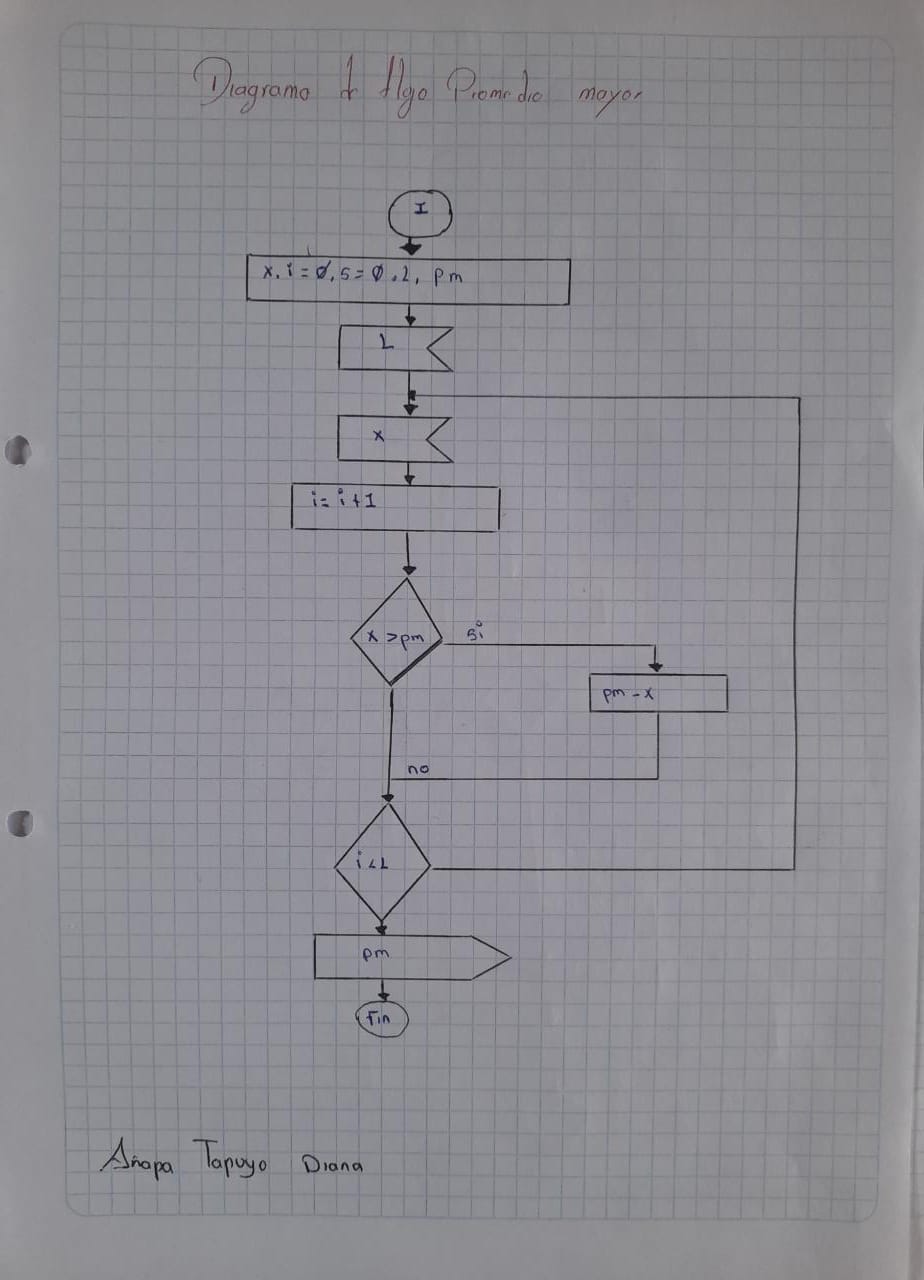 Diagrama d flgo Promedio mayor
I
x, i = 0, s = 0, L, pm
L
x
i = i + 1
x > pm
si
pm - x
no
i < L
pm
Fin
Añapa Tapuyo Diana